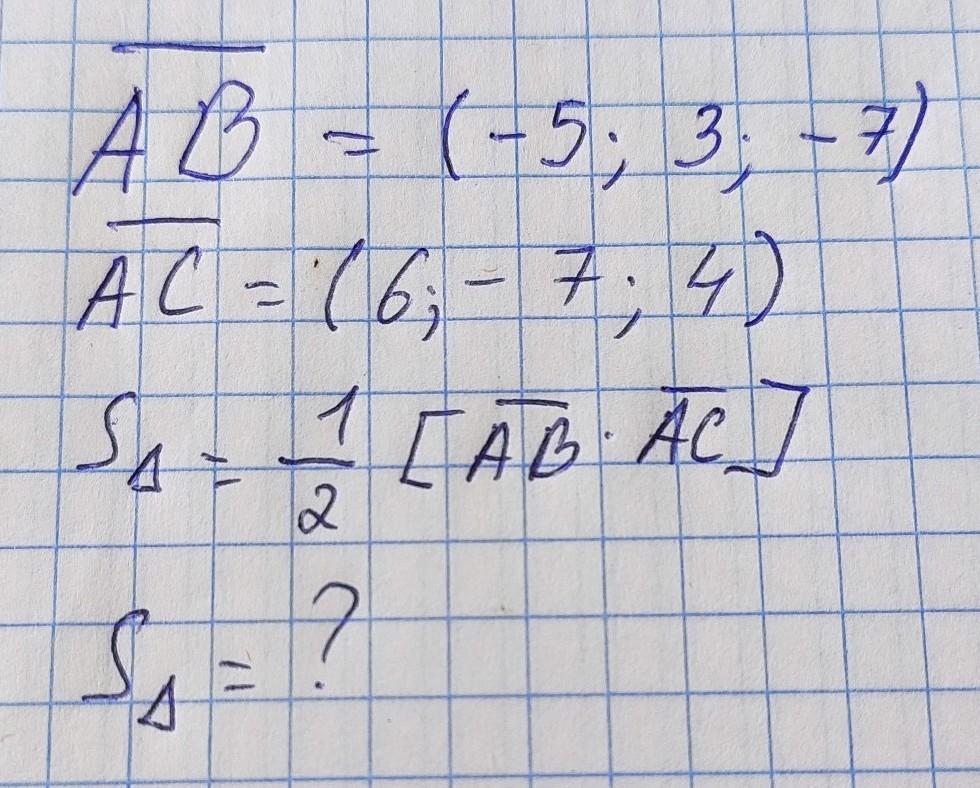 AB = (-5; 3; -7)
AC = (6; - 7; 4)
S△ = 1/2 [AB · AC]
S△ = ?